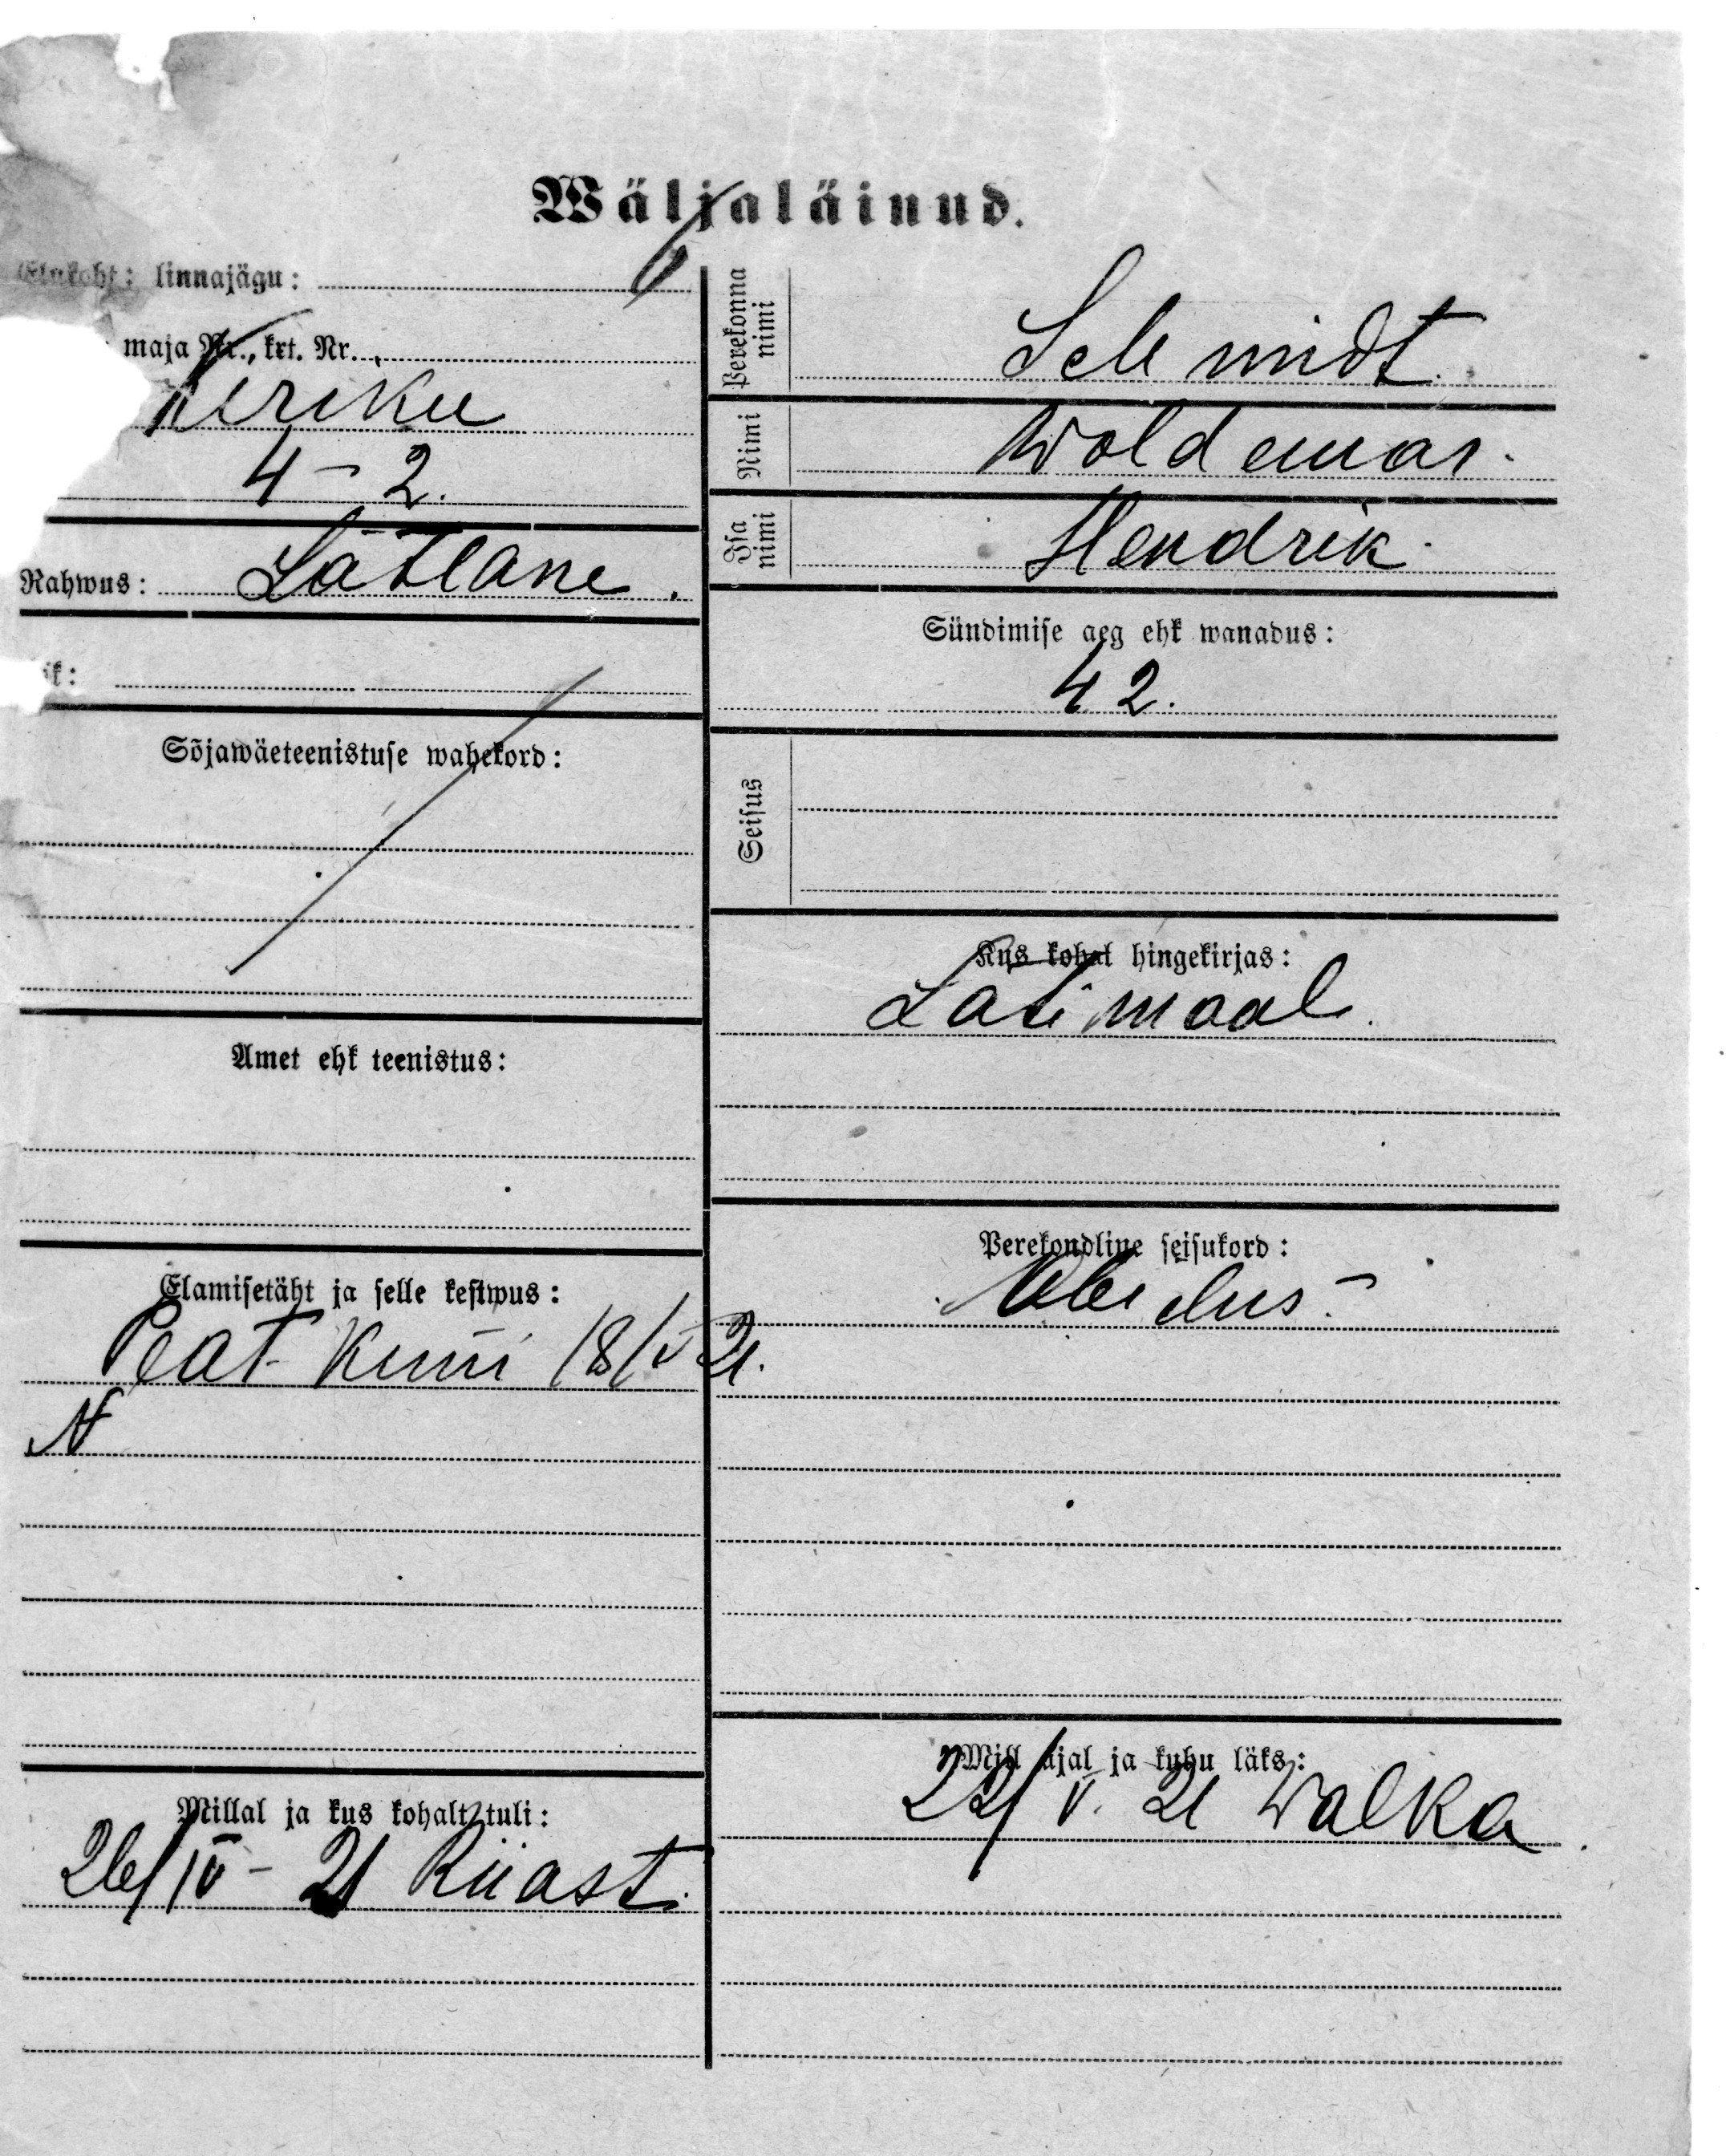 Wäljaläinud.
Elukoht: linnajägu:
maja Nr., krt. Nr.
Kiriku
4 – 2.
Rahwus: Lätlane.
ik:
Sõjawäeteenistuse wahekord:
Amet ehk teenistus:
Elamisetäht ja selle kestwus:
Peat. kuni 18/V 21.
N
Millal ja kus kohalt tuli:
26/IV – 21 Riiast.
Perekonna nimi
Schmidt.
Nimi
Woldemar.
Isa nimi
Hendrik.
Sündimise aeg ehk wanadus:
42.
Seisus
Kus kohal hingekirjas:
Lätimaal.
Perekondline seisukord:
Mill ajal ja kuhu läks:
22/V. 21 Walka.